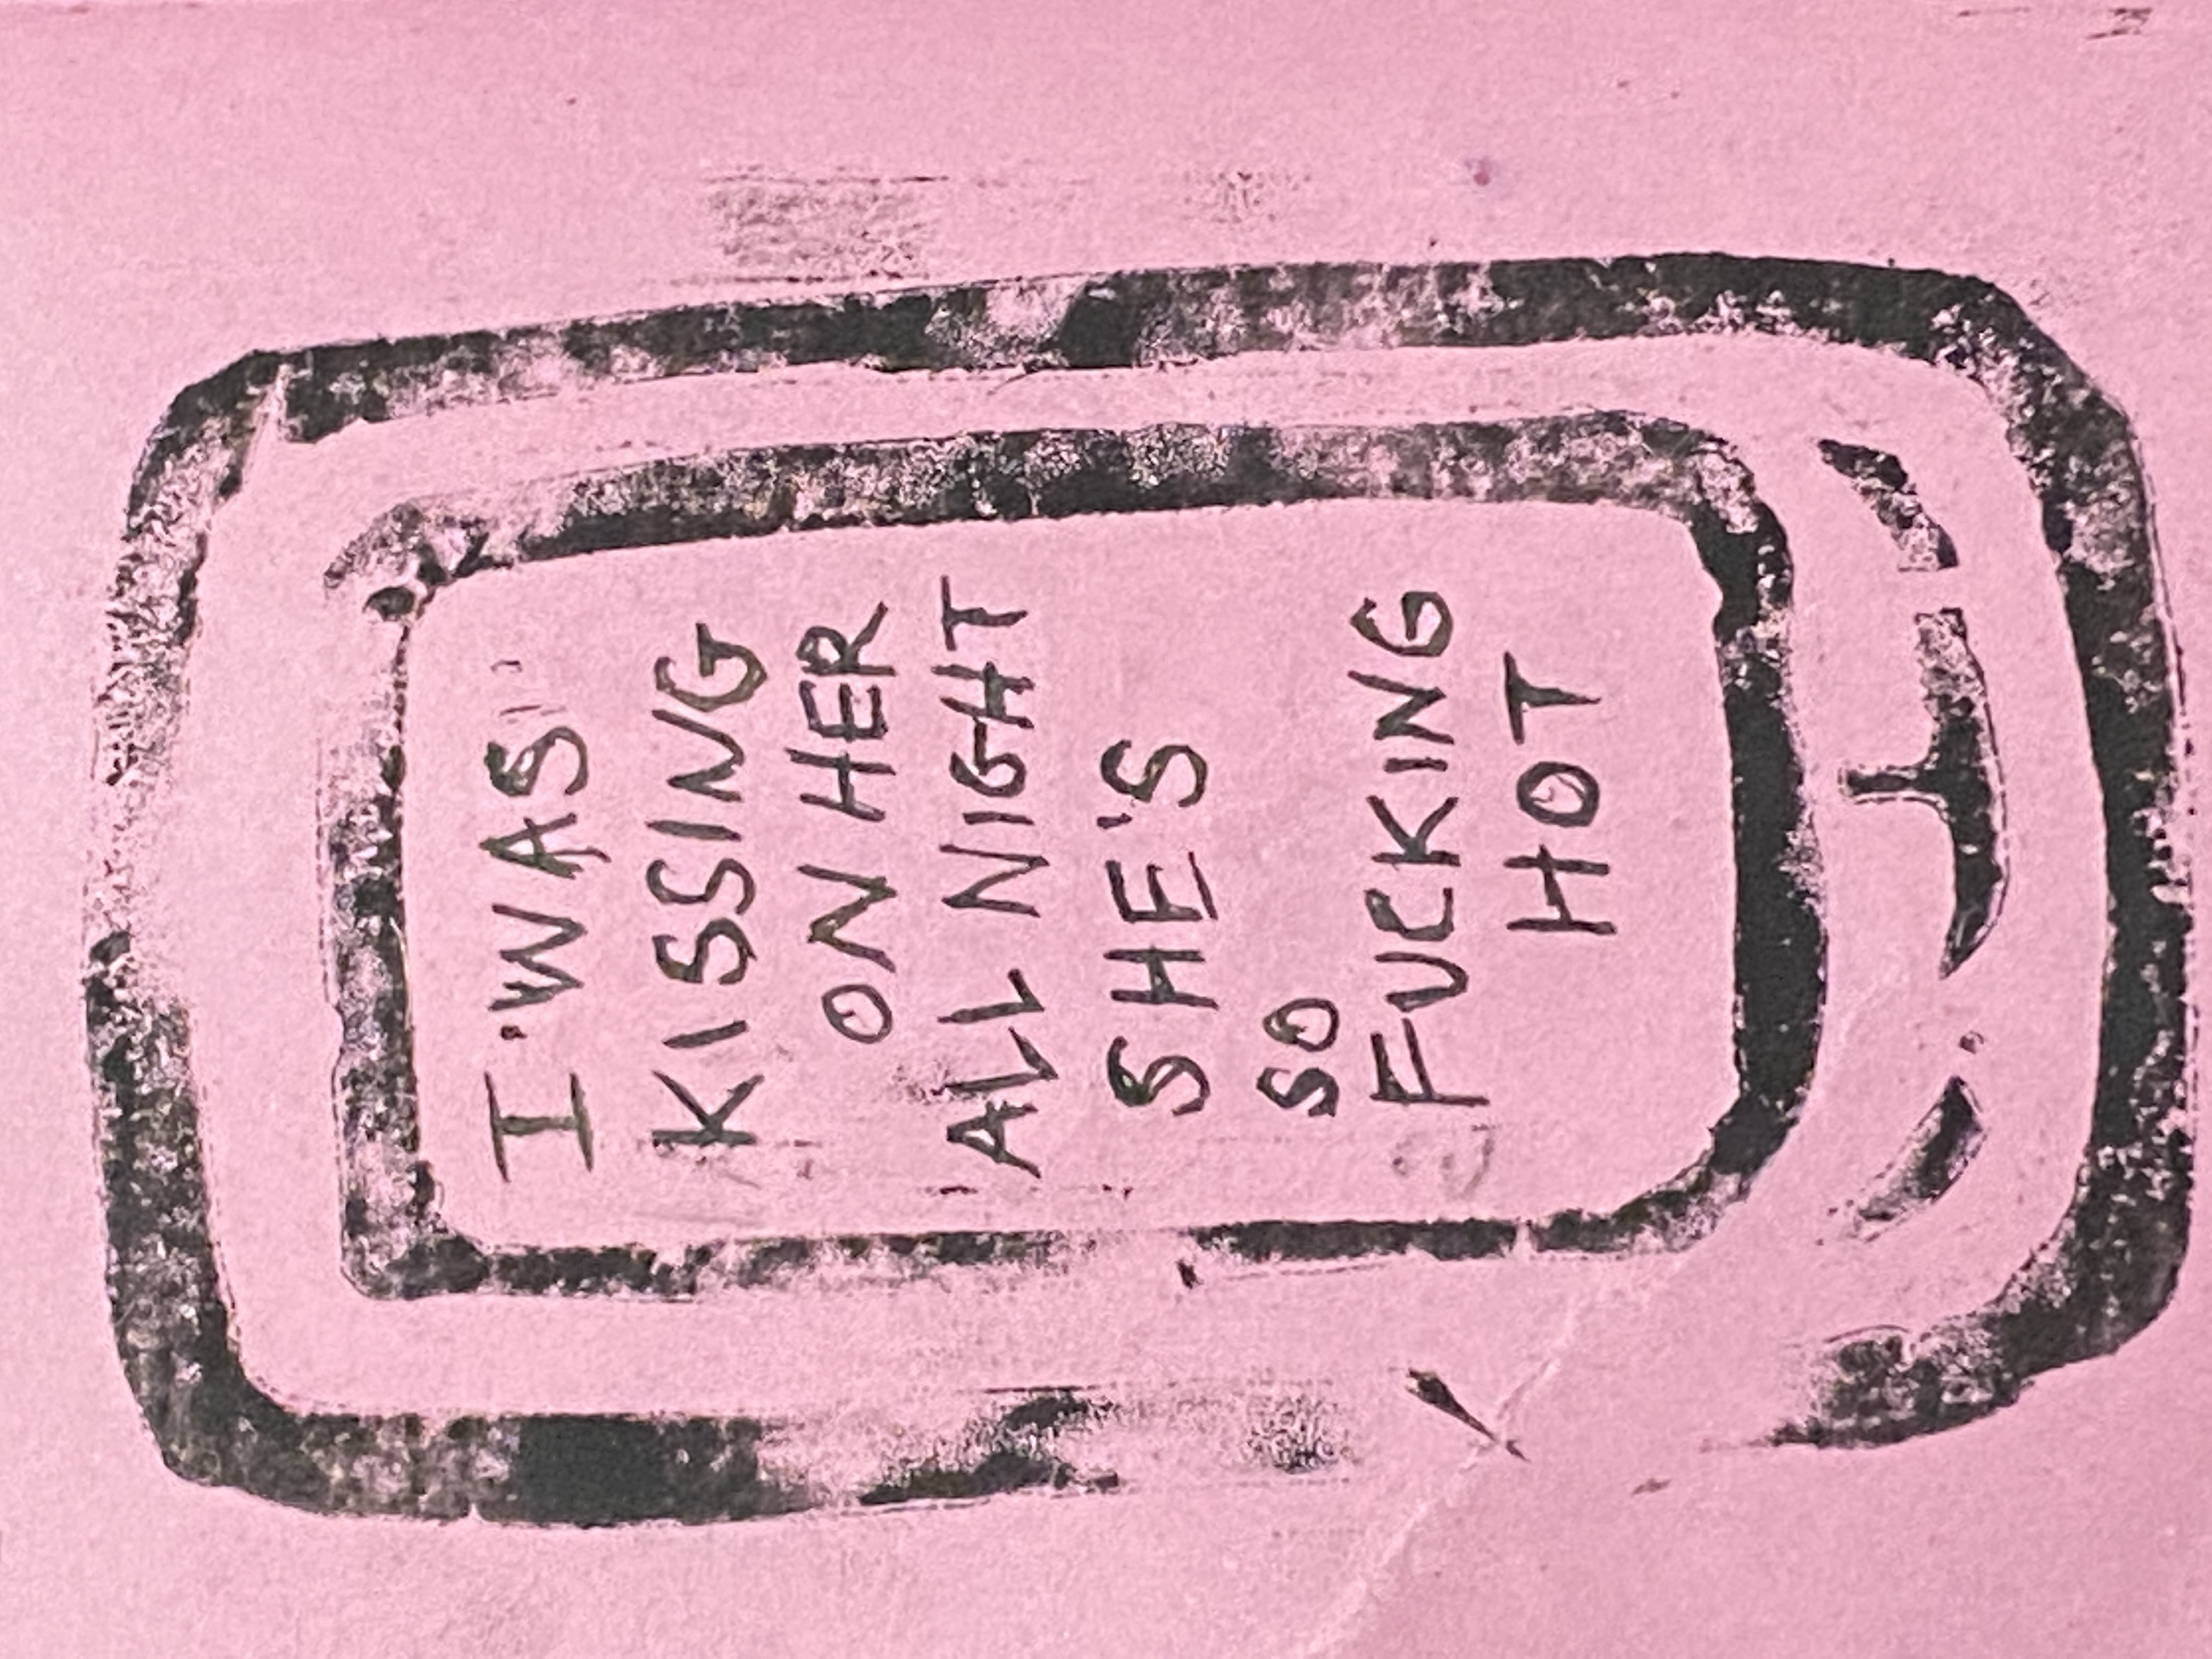 I WAS
KISSING
ON HER
ALL NIGHT
SHE'S
SO
FUCKING
HOT